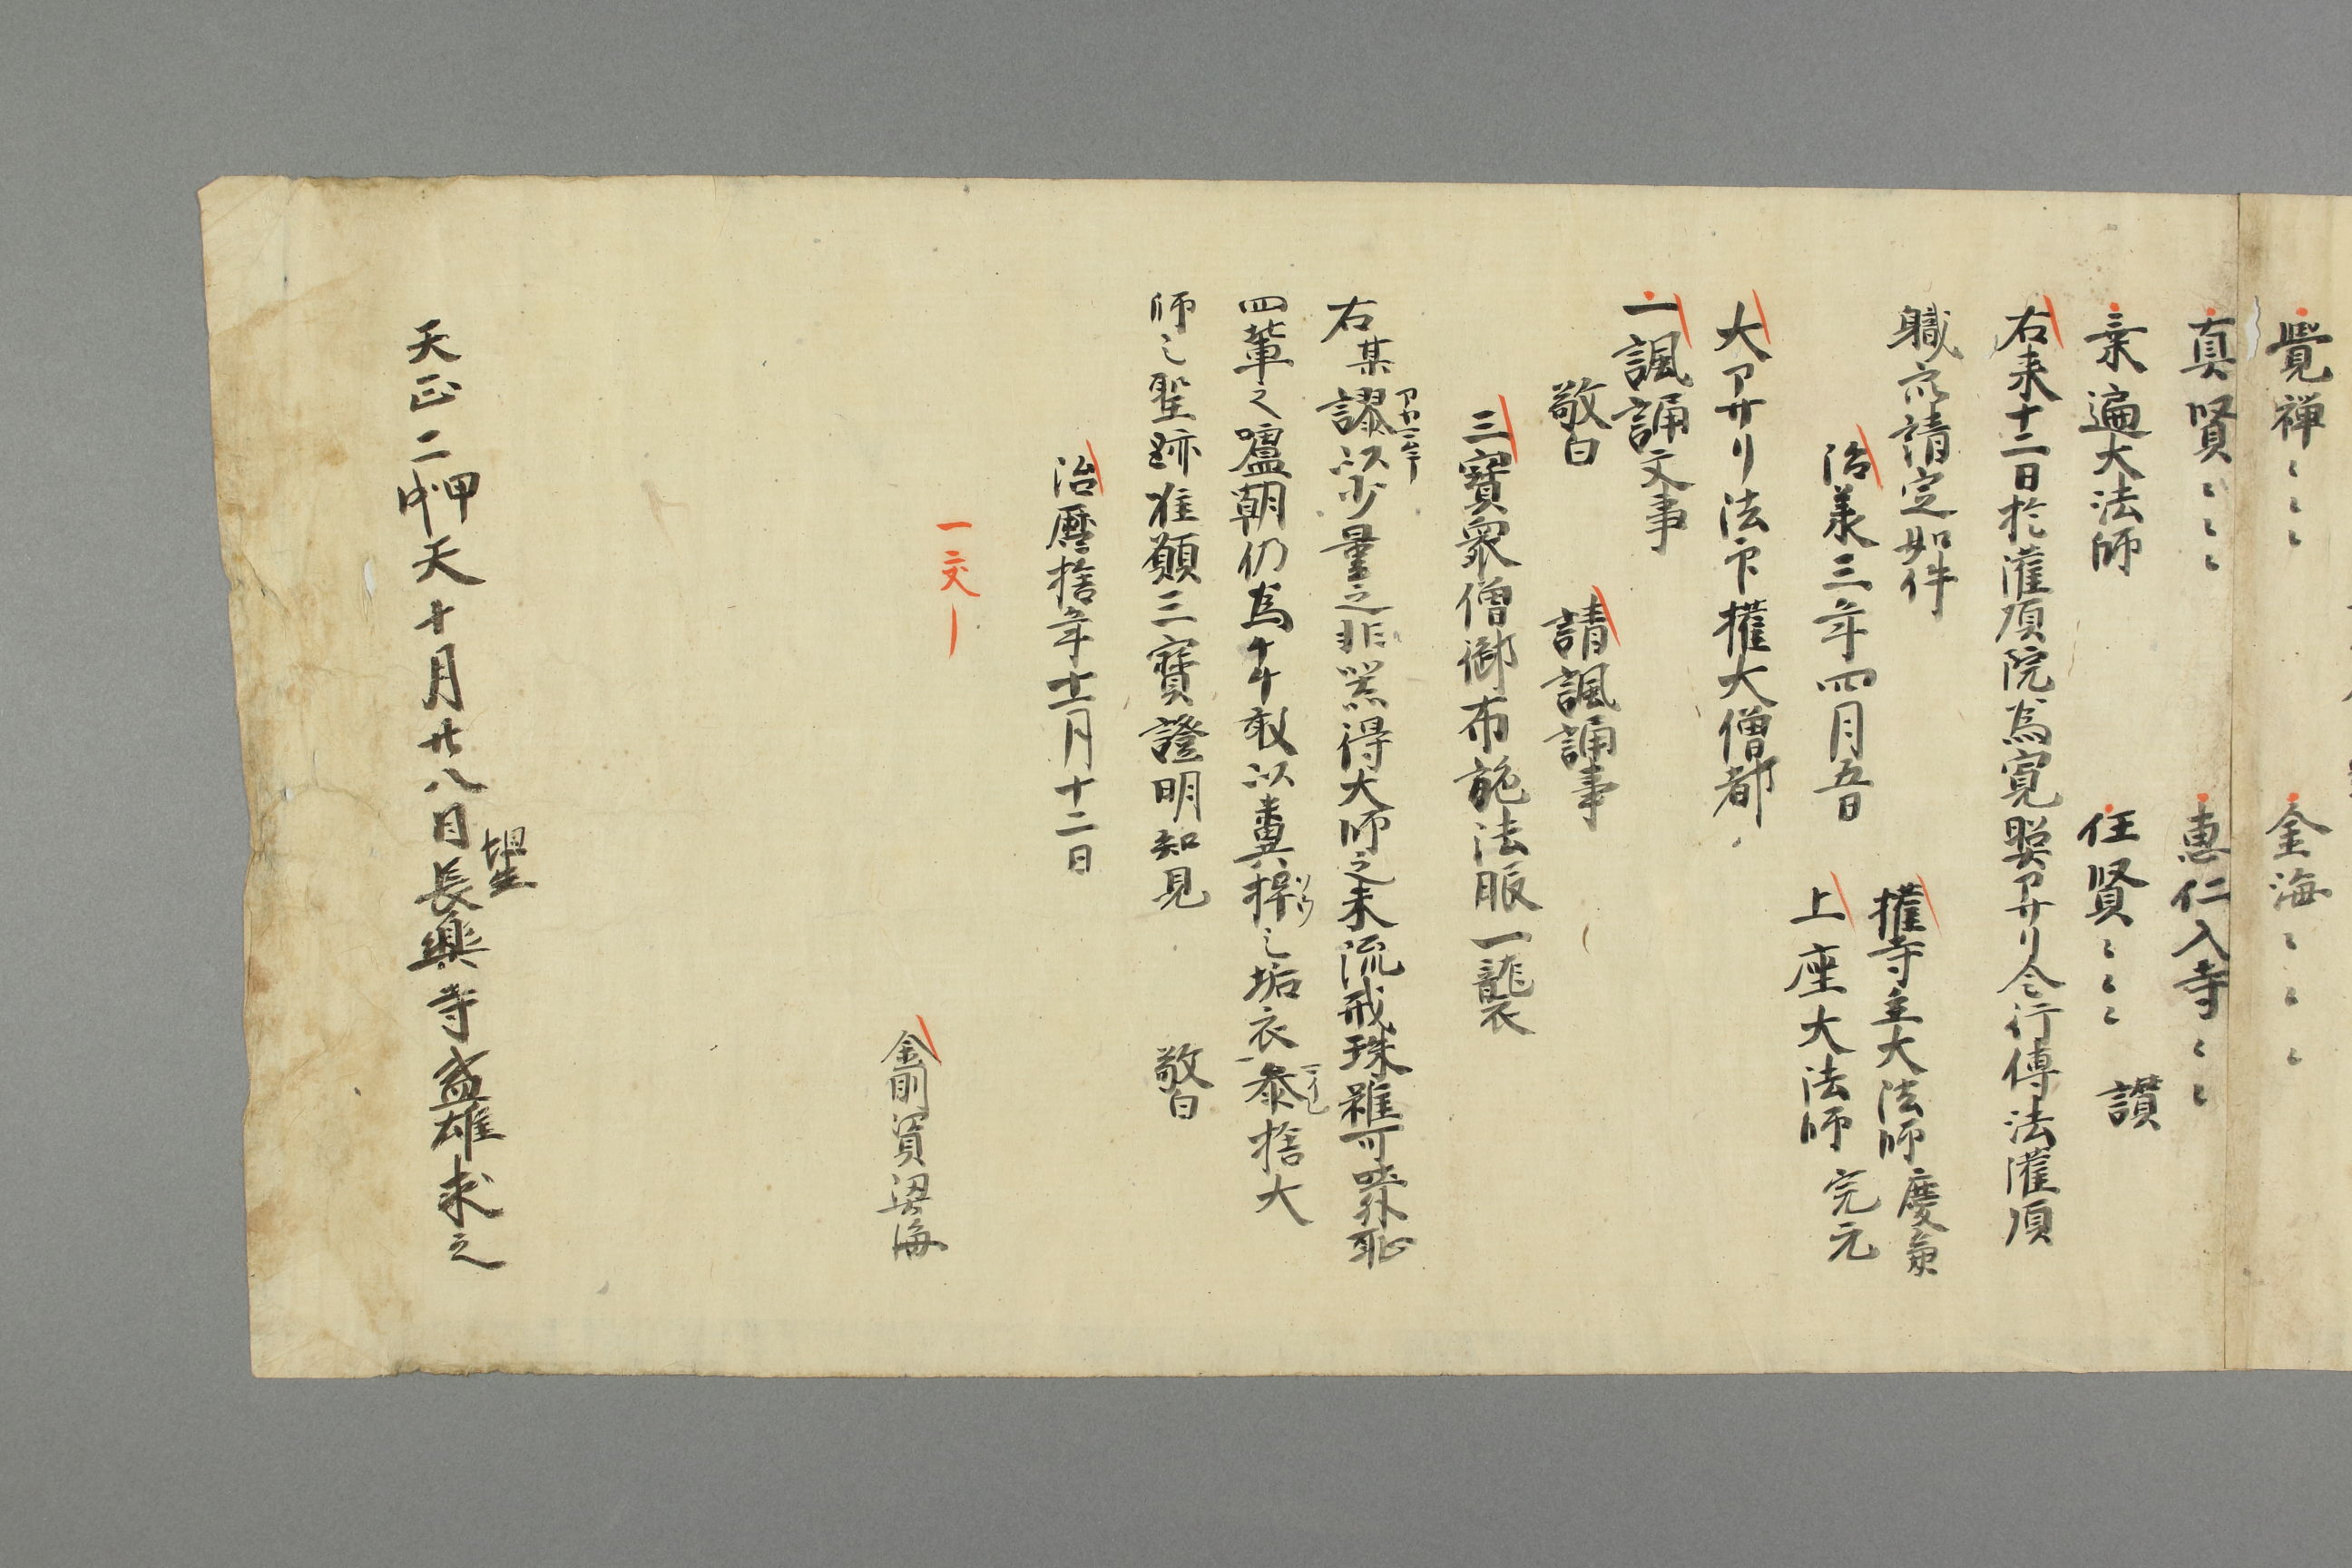 覺禅〻〻〻 金海〻〻〻
真賢〻〻〻 惠仁入寺〻〻
兼遍大法師 任賢〻〻〻 讃
右来十二日於灌頂院為寛 アサリ令行傳法灌頂
職衆請定如件
權寺主大法師慶
治承三年四月五日
上座大法師 完元
大アサリ法印權大僧都
一諷誦文事
敬白 請諷誦事
三寶衆僧御布施法服一襲
右某謬以少量之非器得大師之末流戒珠雖可 恥
四輩之嘲仍為 敢以 之垢衣忝捨大
師之聖跡准願三寶證明知見 敬白
治暦捨年十二月十二日
一交
金剛資 海
天正二甲戌天十月廿八日長興寺盛雄求之